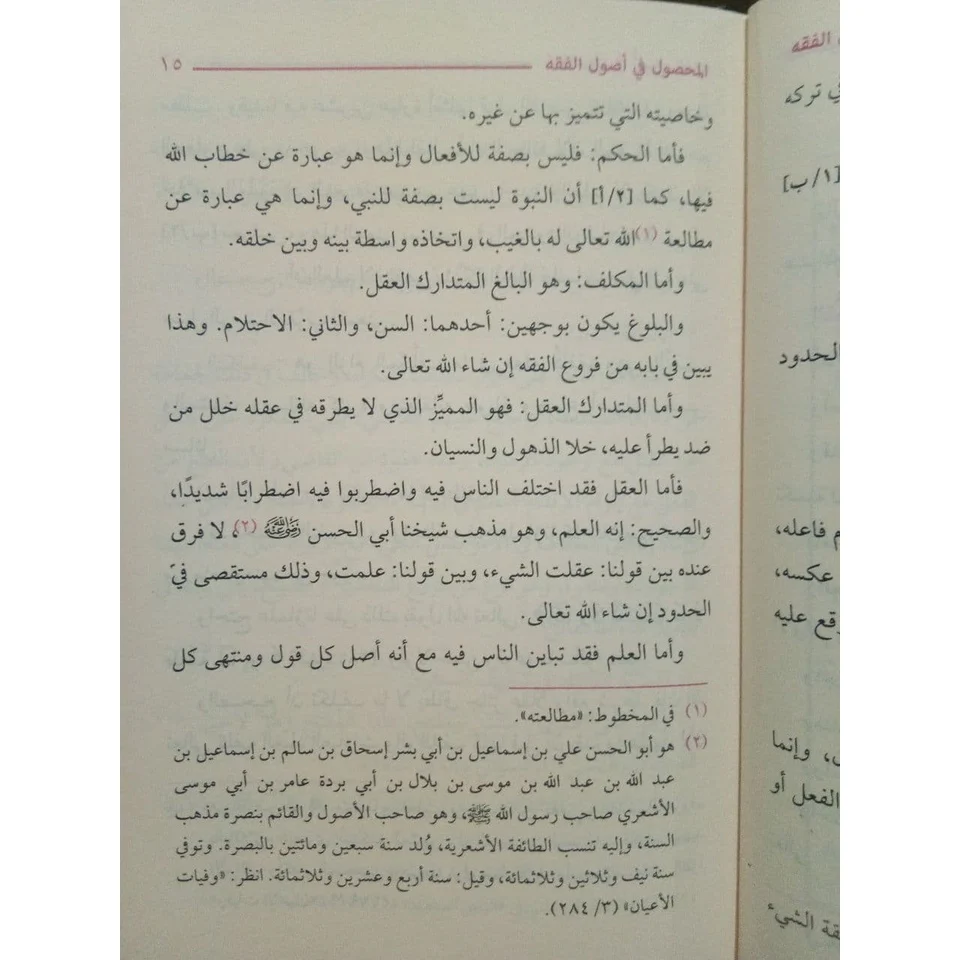 المحصول في أصول الفقه ١٥
وخاصيته التي تتميز بها عن غيره.
فأما الحكم: فليس بصفة للأفعال وإنما هو عبارة عن خطاب الله
فيها، كما [٢/أ] أن النبوة ليست بصفة للنبي، وإنما هي عبارة عن
مطالعة (١)الله تعالى له بالغيب، واتخاذه واسطة بينه وبين خلقه.
وأما المكلف: وهو البالغ المتدارك العقل.
والبلوغ يكون بوجهين: أحدهما: السن، والثاني: الاحتلام. وهذا
يبين في بابه من فروع الفقه إن شاء الله تعالى.
وأما المتدارك العقل: فهو المميِّز الذي لا يطرقه في عقله خلل من
ضد يطرأ عليه، خلا الذهول والنسيان.
فأما العقل فقد اختلف الناس فيه واضطربوا فيه اضطرابًا شديدًا،
والصحيح: إنه العلم، وهو مذهب شيخنا أبي الحسن رضي الله عنه (٢)، لا فرق
عنده بين قولنا: عقلت الشيء، وبين قولنا: علمت، وذلك مستقصى في
الحدود إن شاء الله تعالى.
وأما العلم فقد تباين الناس فيه مع أنه أصل كل قول ومنتهى كل
(١) في المخطوط: «مطالعته».
(٢) هو أبو الحسن علي بن إسماعيل بن أبي بشر إسحاق بن سالم بن إسماعيل بن
عبد الله بن عبد الله بن موسى بن بلال بن أبي بردة عامر بن أبي موسى
الأشعري صاحب رسول الله ﷺ، وهو صاحب الأصول والقائم بنصرة مذهب
السنة، وإليه تنسب الطائفة الأشعرية، وُلد سنة سبعين ومائتين بالبصرة. وتوفي
سنة نيف وثلاثين وثلاثمائة، وقيل: سنة أربع وعشرين وثلاثمائة. انظر: «وفيات
الأعيان» (٣/ ٢٨٤).
الفقه
تركه
[١/ب]
الحدود
فاعله،
عكسه،
عليه
وإنما
الفعل أو
الشيء